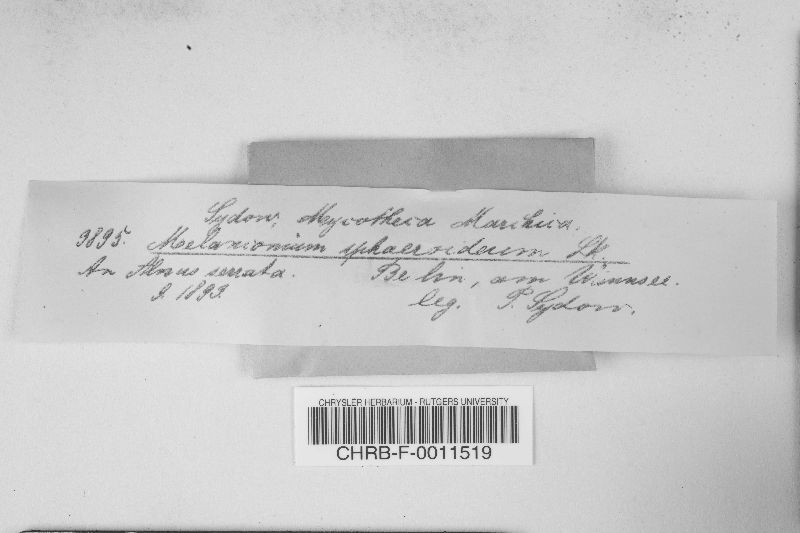 Sydow, Mycotheca Marchica.
3895. Melanconium sphaeroideum Lk.
An Alnus serrata. Berlin, am Wannsee.
9. 1893. leg. P. Sydow.
CHRYSLER HERBARIUM - RUTGERS UNIVERSITY
CHRB-F-0011519